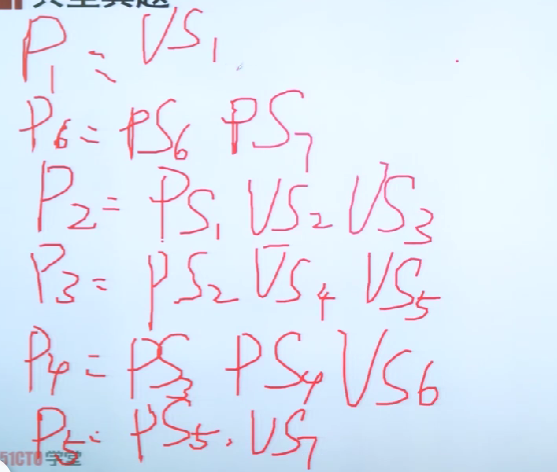 P1 = VS1
P6 = PS6 PS7
P2 = PS1 VS2 VS3
P3 = PS2 VS4 VS5
P4 = PS3 PS4 VS6
P5 = PS5. VS7
51CTO学堂